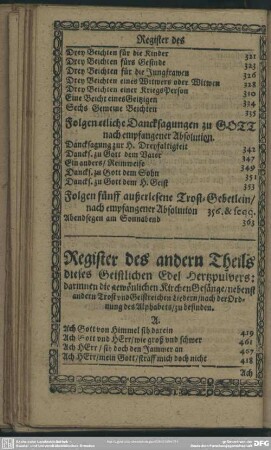 Register des
Drey Beichten für die Kinder 321
Drey Beichten fürs Gesinde 323
Drey Beichten für die Jungfrawen 326
Drey Beichten eines Witwers oder Witwen 328
Drey Beichten einer KriegsPerson 310
Eine Beicht eines Geitzigen 334
Sechs Gemeine Beichten 335
Folgen etliche Dancksagungen zu GOTT
nach empfangener Absolution.
Dancksagung zur H. Dreyfaltigkeit 342
Dancks. zu Gott dem Vater 347
Ein anders / Reimweise 349
Dancks. zu Gott dem Sohn 351
Dancks. zu Gott dem H. Geist 353
Folgen fünff außerlesene Trost-Gebetlein/
nach empfangener Absolution 356. & seqq.
Abendsegen am Sonnabend 363
Register des andern Theils
dieses Geistlichen Edel Hertzpulvers:
darinnen die gewönlichen Kirchen Gesänge/nebenst
andern Trost und Geistreichen Liedern/nach der Ord-
nung des Alphabets/zu befinden.
A.
Ach Gott von Himmel sih darein 419
Ach Gott und HErr/wie groß und schwer 461
Ach HErr/sih doch den Jammer an 467
Ach HErr/mein Gott/straff mich doch nicht 418
Ach